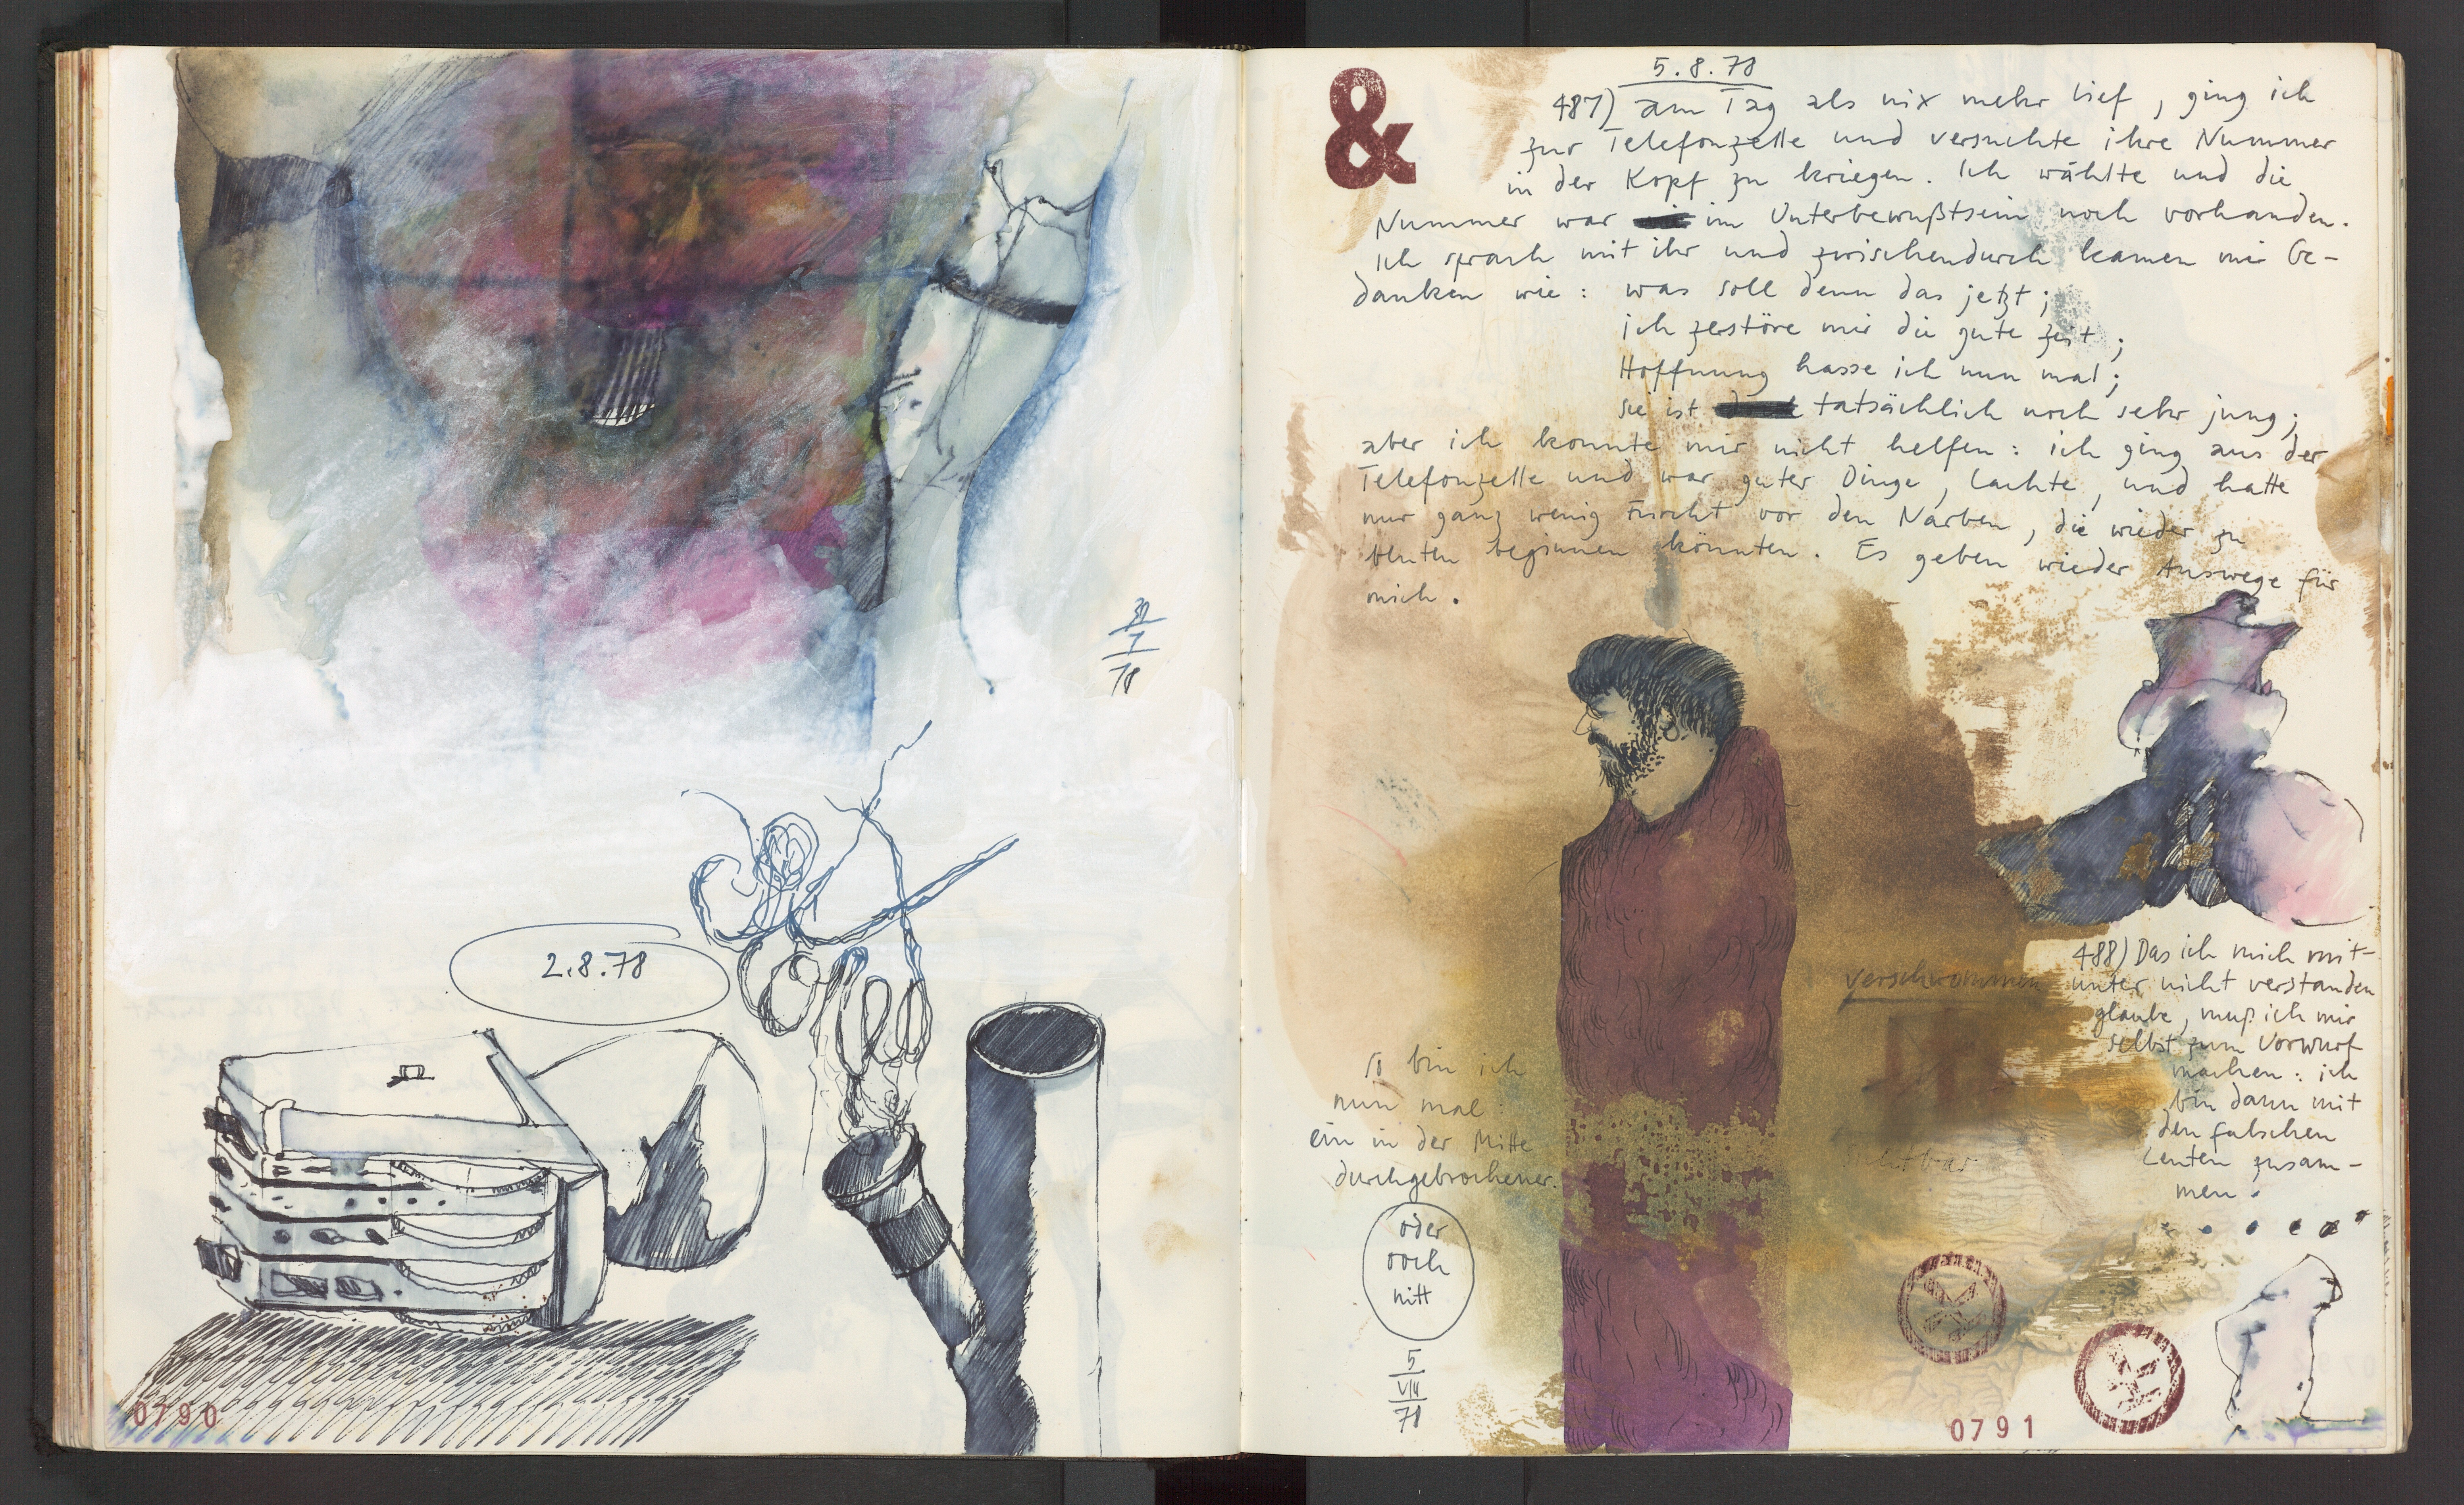 30
7
78
2.8.78
0790
&
5.8.78
487) am Tag als nix mehr lief, ging ich
zur Telefonzelle und versuchte ihre Nummer
in der Kopf zu kriegen. Ich wählte und die
Nummer war im Unterbewußtsein noch vorhanden.
Ich sprach mit ihr und zwischendurch kamen mir Ge-
danken wie: was soll denn das jetzt;
ich zerstöre mir die gute zeit;
Hoffnung hasse ich nun mal;
sie ist tatsächlich noch sehr jung;
aber ich konnte mir nicht helfen: ich ging aus der
Telefonzelle und war guter Dinge, lachte, und hatte
nur ganz wenig Furcht vor den Narben, die wieder zu
bluten beginnen könnten. Es geben wieder Auswege für
mich.
488) Das ich mich mit-
unter nicht verstanden
glaube, muß ich mir
selbst zum Vorwurf
machen: ich
bin dann mit
den falschen
Leuten zusam-
men.
verschwommen
so bin ich
nun mal
ein in der Mitte
durchgebrochener.
oder
noch
nitt
5
VIII
78
0791